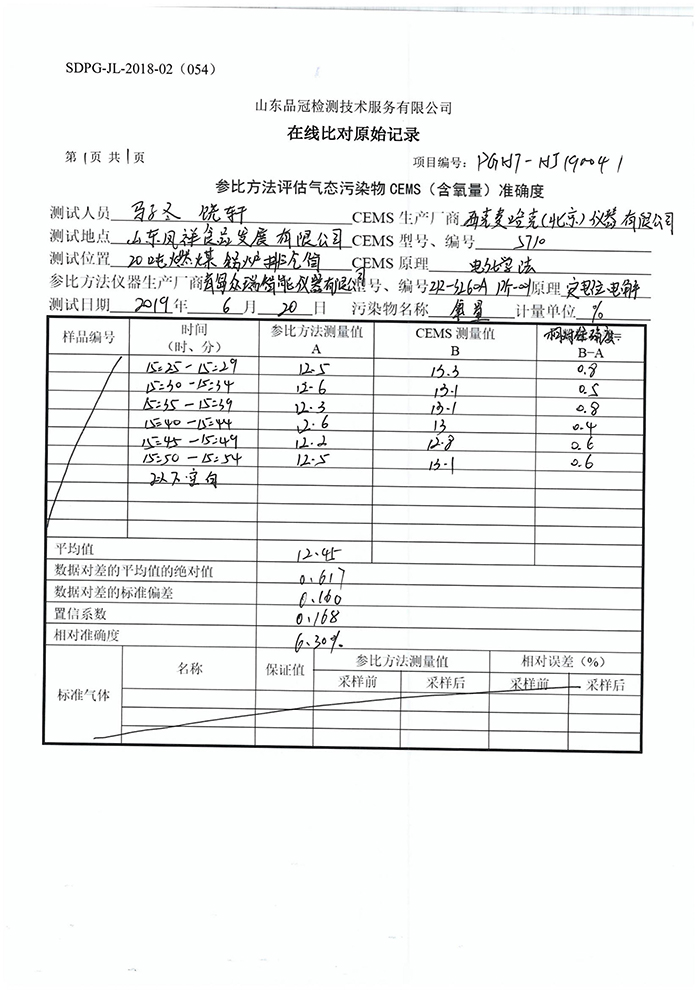 SDPG-JL-2018-02（054）
山东品冠检测技术服务有限公司
在线比对原始记录
第1页 共1页 项目编号：PGHJ-HJ190041
参比方法评估气态污染物CEMS（含氧量）准确度
测试人员 饶轩 CEMS 生产厂商 西克麦哈克(北京)仪器有限公司
测试地点 山东凤祥食品发展有限公司 CEMS 型号、编号 S710
测试位置 20吨燃煤锅炉排气筒 CEMS 原理 电化学法
参比方法仪器生产厂商 青岛众瑞智能仪器有限公司 型号、编号 ZR-3260A 原理 定电位电解
测试日期 2019年 6月 20日 污染物名称 氧量 计量单位 %
样品编号 时间（时、分） 参比方法测量值 A CEMS 测量值 B 相对准确度= B-A
15:25-15:29 12.5 13.3 0.8
15:30-15:34 12.6 13.1 0.5
15:35-15:39 12.3 13.1 0.8
15:40-15:44 12.6 13 0.4
15:45-15:49 12.2 12.8 0.6
15:50-15:54 12.5 13.1 0.6
以下空白
平均值 12.45
数据对差的平均值的绝对值 0.617
数据对差的标准偏差 0.160
置信系数 0.168
相对准确度 6.30%
标准气体 名称 保证值 参比方法测量值 相对误差（%）
采样前 采样后 采样前 采样后